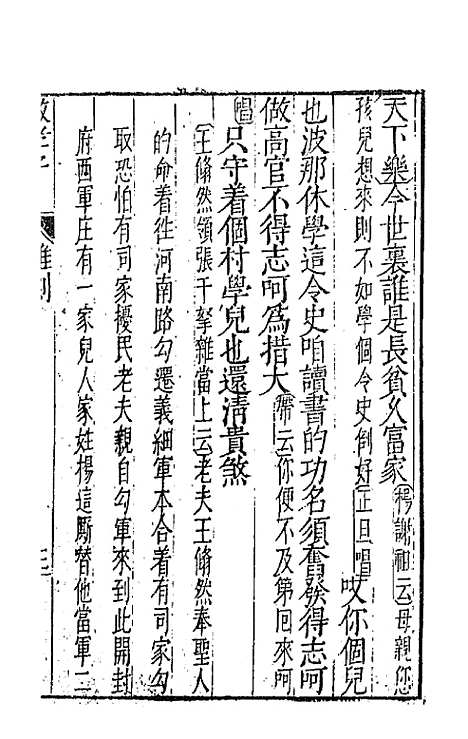 天下樂今世裏誰是長貧久富家（楊謝祖云）母親您
孩兒想來則不如學個令史倒好（正旦唱）哎你個兒
也波那休學這令史咱讀書的功名須奮發得志呵
做高官不得志呵爲措大（帶云）你便不及第回來呵
（唱）只守着個村學兒也還清貴煞
（王翛然領張千拏雜當上云）老夫王翛然奉聖人
的命着徃河南路勾遷義細軍本合着有司家勾
取恐怕有司家擾民老夫親自勾軍來到此開封
府西軍庄有一家兒人家姓楊這厮替他當軍二
救孝子 雜劇